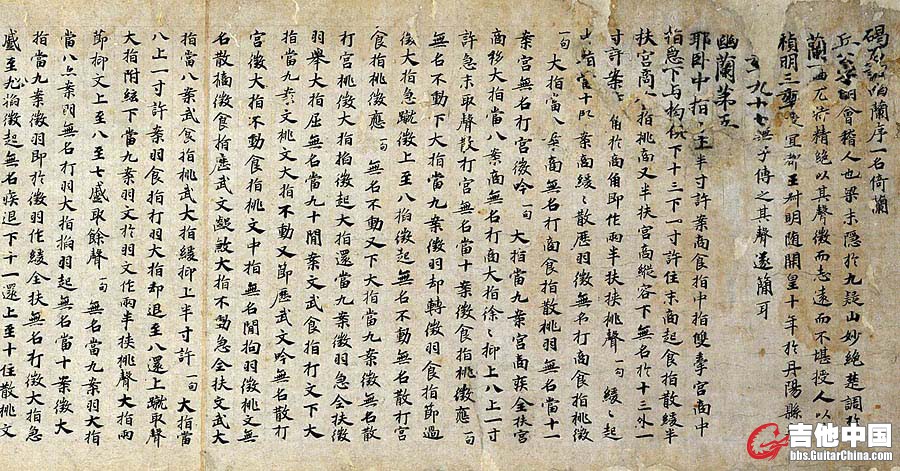 碣石調幽蘭序一名倚蘭
丘公字明會稽人也梁末隱於九疑山妙絕楚調於
蘭一曲尤特精絕以其聲徵而志遠而不堪授人以
禎明三年宜都王叔明隨開皇十年於丹陽縣
九十七無子傳之其聲遂蘭耳
幽蘭第五
耶臥中指十上半寸許案商食指中指雙牽宮商中
指急下与拘俱下十三下一寸許住末商起食指散緩半
扶宮商食指挑商又半扶宮商縱容下無名於十三外一
寸許案角於商角即作兩半扶挾挑聲一句緩〻起
無名當十案商緩〻散歷羽徵無名打商食指挑徵
一句大指當八案商無名打商食指散挑羽無名當十一
案宮無名打宮徵後吟一句大指當九案宮商疾全扶宮
商移大指當八案商無名打商大指徐〻抑上八上一寸
許急末取聲散打宮無名當十案徵食指挑徵應一句
無名不動下大指當九案徵羽却轉徵羽食指節過
徐大指急蹴徵上至八掐徵起無名不動無名散打宮
食指挑徵應一句無名不動又下大指當九案徵無名散
打宮挑徵大指掐徵起大指還當九案徵羽急全扶徵
羽舉大指屈無名當九十間案文武食指打文下大
指當九案文挑文大指不動又節歷武文吟無名散打
宮徵大指不動食指挑文中指無名間拘羽徵挑文無
名散摘徵食指歷武文蹴大指不動急全扶文武大
指當八案武食指挑武大指緩抑上半寸許一句大指當
八上一寸許案羽食指打羽大指却退至八還上蹴取聲
大指附絃下當九案羽文於羽文作兩半扶挑聲大指兩
節抑文上至八七蹙取餘聲一句無名當九案羽大指
當八案間無名打羽大指掐羽起無名當十案徵大
指當九案徵羽即於徵羽作緩全扶無名打徵大指急
蹙至九掐徵起無名疾退下十一還上至十住散挑文
吉他中国
bbs.GuitarChina.com